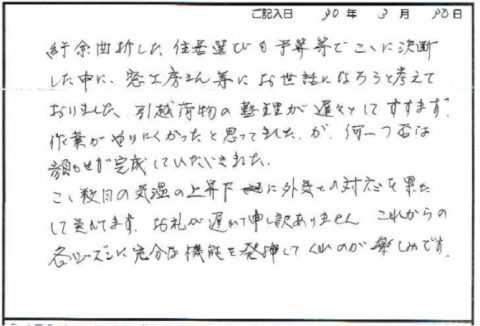 ご記入日 30年 3月 30日
紆余曲折した住居選びも予算等でここに決断
した中に、窓工房さん等にお世話になろうと考えて
おりました、引越荷物の整理が遅々としてすすまず、
作業がやりにくかったと思ってました、が、何一つ否な
顔もせず完成していただきました。
ここ数日の気温の上昇下に外気との対応を果た
して呉れてます。お礼が遅れて申し訳ありません これからの
各シーズンに充分な機能を発揮してくれるのが楽しみです。